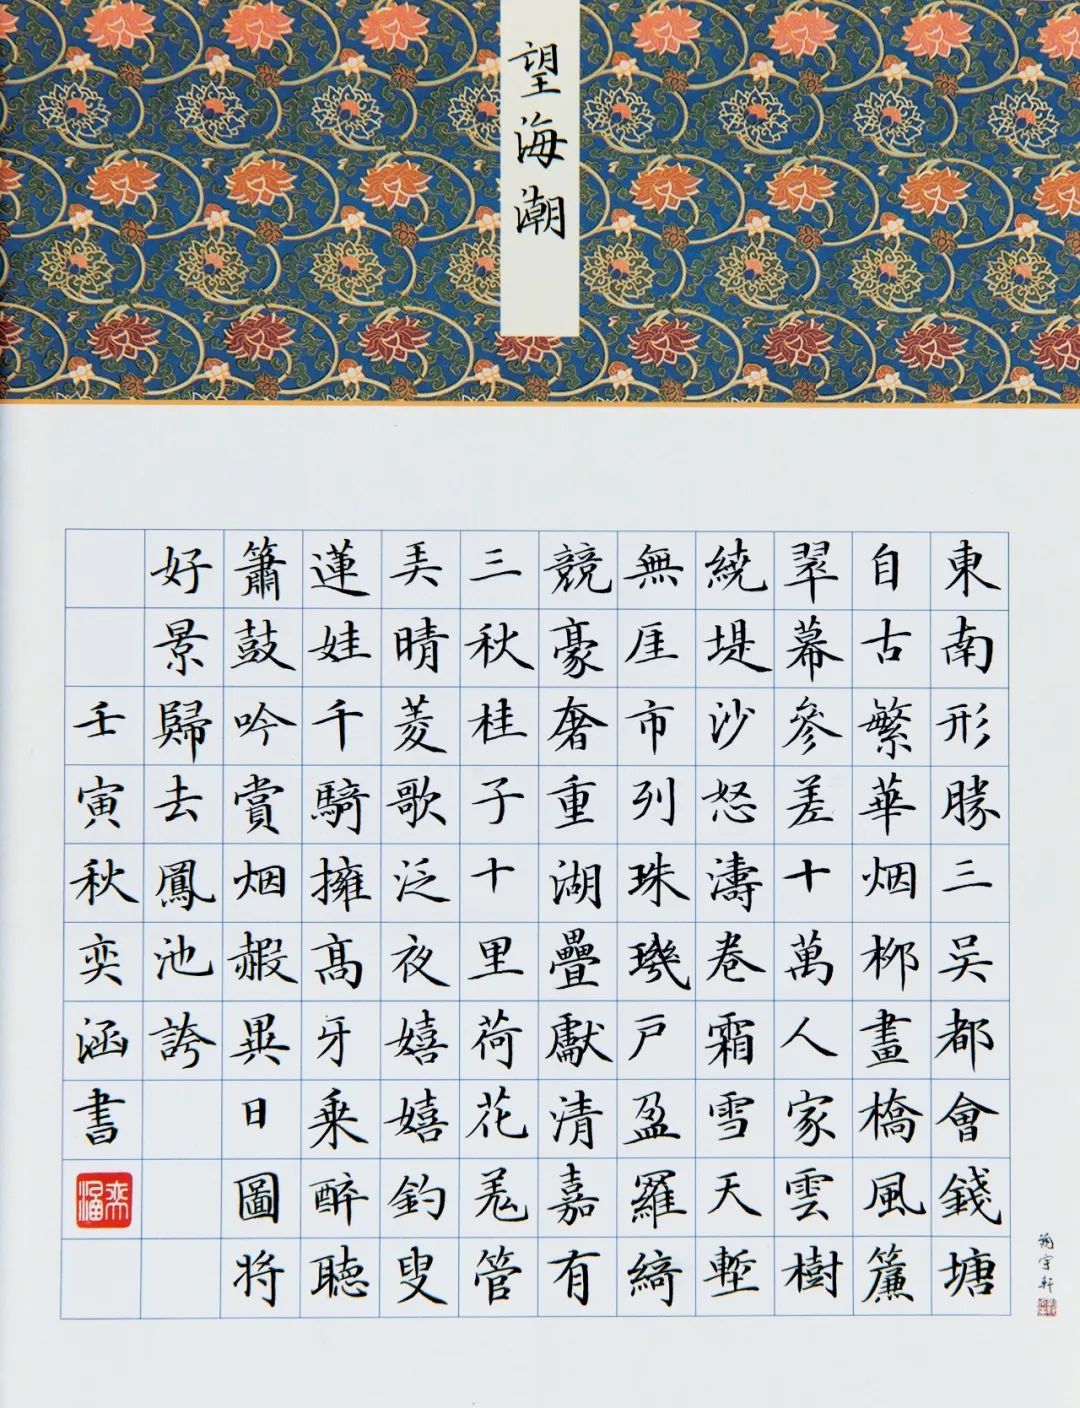 望海潮
東南形勝三吴都會錢塘
自古繁華烟柳畫橋風簾
翠幕參差十萬人家雲樹
繞堤沙怒濤卷霜雪天塹
無厓市列珠璣戶盈羅綺
競豪奢重湖疊獻清嘉有
三秋桂子十里荷花羌管
弄晴菱歌泛夜嬉嬉釣叟
蓮娃千騎擁髙牙乗醉聽
簫鼓吟賞烟赮異日圖將
好景歸去鳳池誇
壬寅秋奕涵書
奕涵